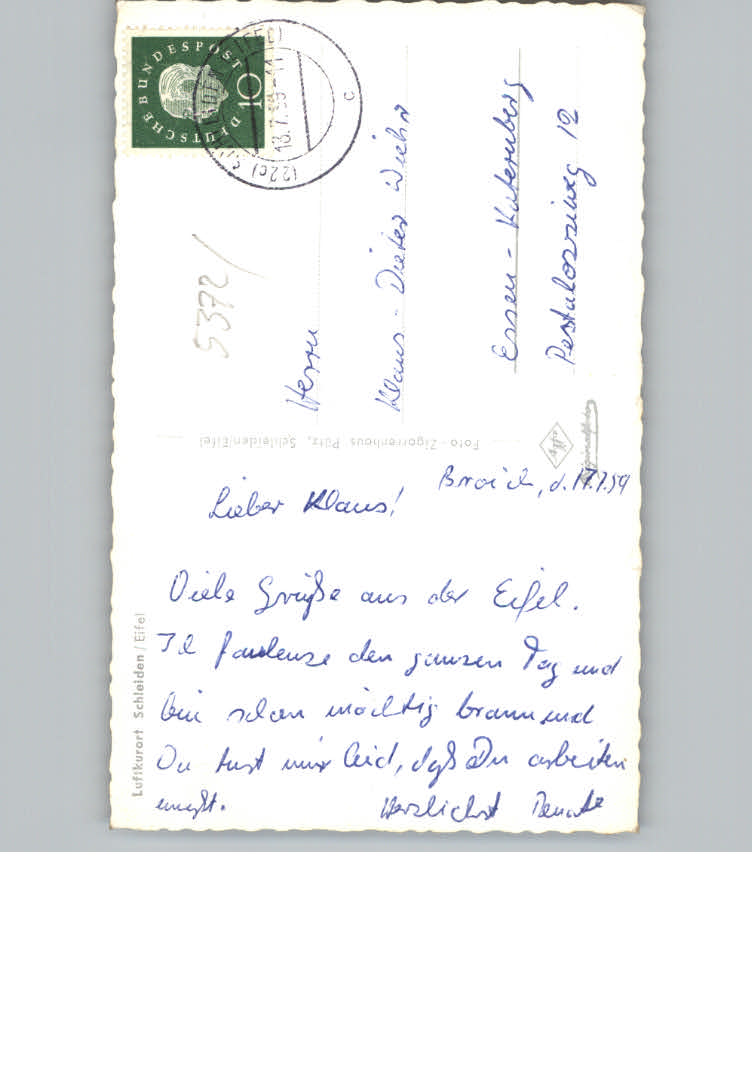 Luftkurort Schleiden / Eifel
Broich, d. 17.7.59
Lieber Klaus!
Viele Grüße aus der Eifel.
Ich faulenze den ganzen Tag und
bin schon mächtig braun und
Du tust mir leid, daß Du arbeiten
mußt. Herzlichst Renate
Foto-Zigarrenhaus Pütz, Schleiden/Eifel
Agfa
DEUTSCHE BUNDESPOST
10
(22c) SCHLEIDEN (EIFEL)
18.7.59-11
c
5372/
Herrn
Klaus-Dieter Wiehn
Essen-Katernberg
Pestalozziweg 12